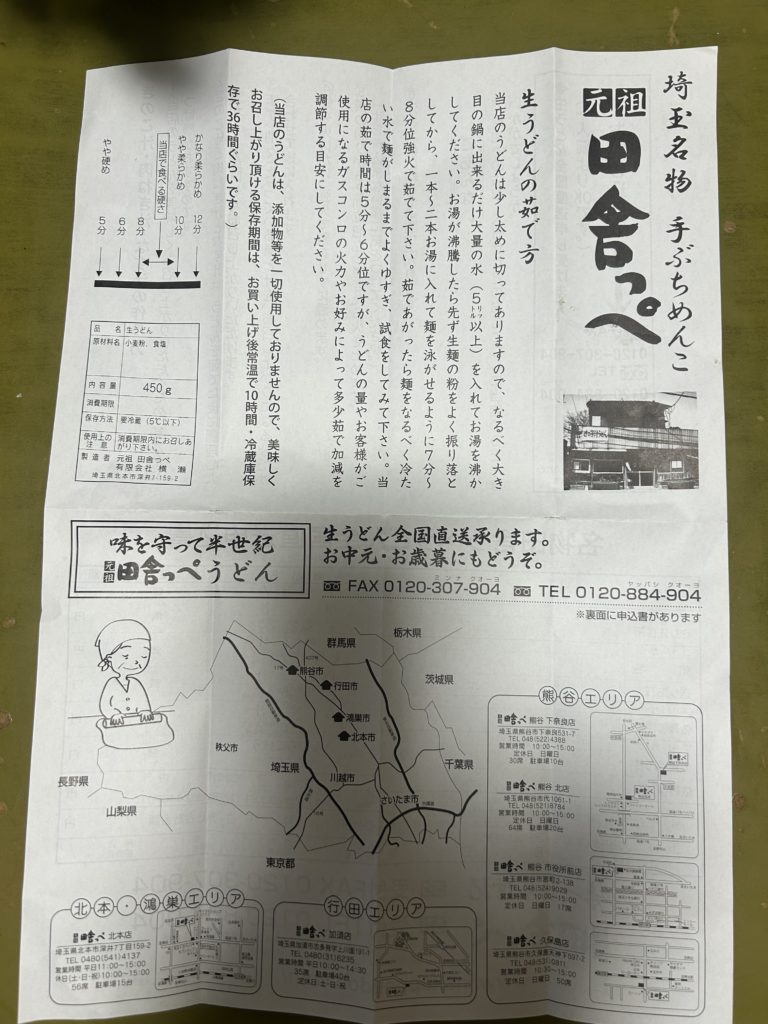 埼玉名物 手ぶちめんこ
元祖 田舎っぺ
生うどんの茹で方
当店のうどんは少し太めに切ってありますので、なるべく大き
目の鍋に出来るだけ大量の水（5リットル以上）を入れてお湯を沸か
してください。お湯が沸騰したら先ず生麺の粉をよく振り落と
してから、一本〜二本お湯に入れて麺を泳がせるように7分〜
8分位強火で茹でて下さい。茹であがったら麺をなるべく冷た
い水で麺がしまるまでよくゆすぎ、試食をしてみて下さい。当
店の茹で時間は5分〜6分位ですが、うどんの量やお客様がご
使用になるガスコンロの火力やお好みによって多少茹で加減を
調節する目安にしてください。
（当店のうどんは、添加物等を一切使用しておりませんので、美味しく
お召し上がり頂ける保存期間は、お買い上げ後常温で10時間・冷蔵庫保
存で36時間ぐらいです。）
かなり柔らかめ 12分
やや柔らかめ 10分
当店で食べる硬さ
8分
6分
やや硬め 5分
品名 生うどん
原材料名 小麦粉、食塩
内容量 450g
消費期限
保存方法 要冷蔵（5℃以下）
使用上の注意 消費期限内にお召しあがり下さい。
製造者 元祖 田舎っぺ
有限会社 横瀬
埼玉県北本市深井7-159-2
味を守って半世紀
元祖 田舎っぺうどん
生うどん全国直送承ります。
お中元・お歳暮にもどうぞ。
ミンナ クオーヨ
FAX 0120-307-904
ヤッパシ クオーヨ
TEL 0120-884-904
※裏面に申込書があります
群馬県
栃木県
茨城県
熊谷市
行田市
鴻巣市
北本市
秩父市
埼玉県
川越市
さいたま市
千葉県
長野県
山梨県
東京都
熊谷エリア
元祖 田舎っぺ 熊谷 下奈良店
埼玉県熊谷市下奈良531-7
TEL 048(522)4388
営業時間 10:00〜15:00
定休日 日曜日
30席 駐車場10台
元祖 田舎っぺ 熊谷 北店
埼玉県熊谷市代1061-1
TEL 048(521)8784
営業時間 10:00〜15:00
定休日 日曜日
64席 駐車場20台
元祖 田舎っぺ 熊谷 市役所前店
TEL 048(524)9029
営業時間 10:00〜15:00
定休日 日曜日 17席
元祖 田舎っぺ 久保島店
TEL 048(531)0811
営業時間 10:30〜15:00
定休日 日曜日 50席
北本・鴻巣エリア
元祖 田舎っぺ 北本店
埼玉県北本市深井7丁目159-2
TEL 0480(541)4137
営業時間 平日11:00〜15:00
休日(土・日・祝)10:00〜15:00
56席 駐車場15台
行田エリア
元祖 田舎っぺ 加須店
TEL 0480(31)6235
営業時間 平日10:00〜14:30
35席 駐車場40台
定休日:土・日・祝